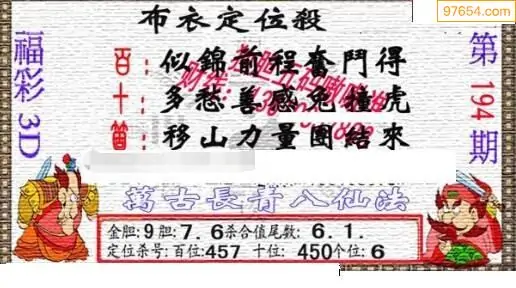 97654.com
布衣定位殺
福彩3D
第194期
百:似錦前程奮鬥得
十:多愁善感兔撞虎
箇:移山力量團結來
萬古長青八仙法
金胆:9胆:7.6杀合值尾数:6.1.
定位杀号:百位:457 十位:450个位:6